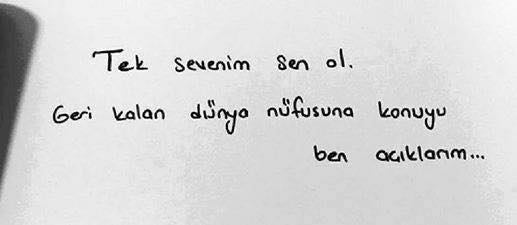 Tek sevenim sen ol.
Geri kalan dünya nüfusuna konuyu
ben açıklarım...